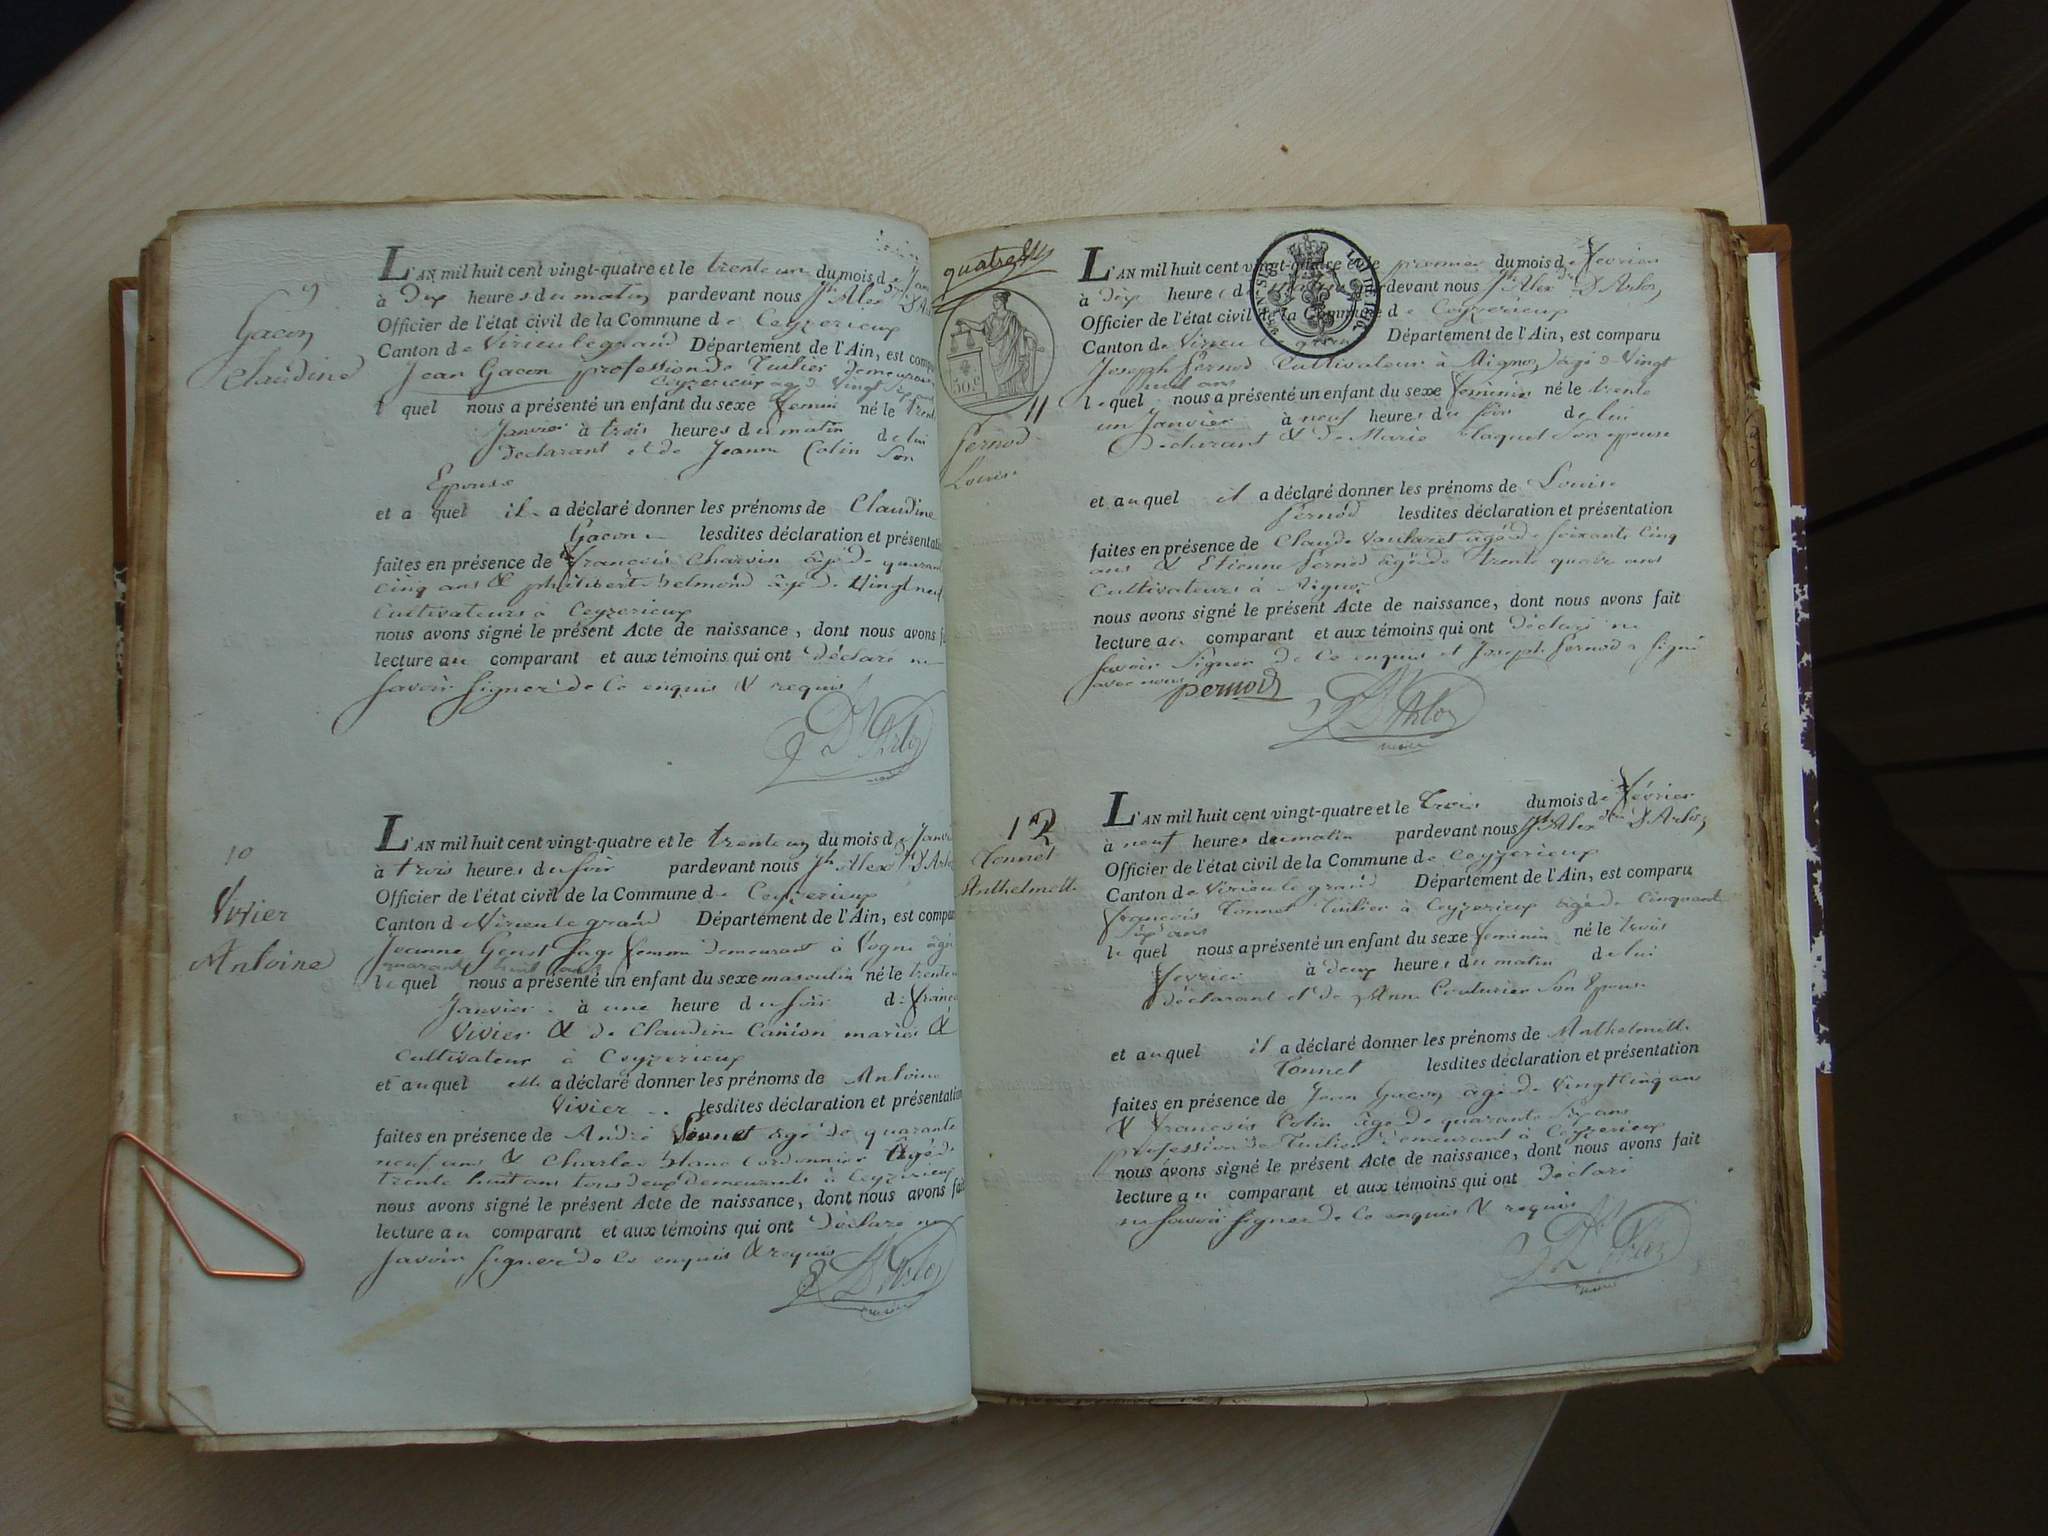 9
Gacon
Claudine
L'AN mil huit cent vingt-quatre et le trente un du mois de
à Dix heures du matin pardevant nous Jh Alex
Officier de l'état civil de la Commune de Ceyzerieux
Canton de Virieu le grand Département de l'Ain, est
Jean Gacon profession de Tuilier
Ceyzerieux agé de Vingt
lequel nous a présenté un enfant du sexe femin né le trente
Janvier à trois heures du matin de lui
declarant et de Jeanne Colin Son
Epouse
et a quel il a déclaré donner les prénoms de Claudine
Gacon lesdites déclaration et
faites en présence de françois Charvin âgé de
Cinq ans & philibert âgé de Vingt neuf
Cultivateurs à Ceyzerieux
nous avons signé le présent Acte de naissance, dont nous avons
lecture au comparant et aux témoins qui ont déclaré ne
Savoir Signer de ce enquis & requis
D'Arloz
10
Vivier
Antoine
L'AN mil huit cent vingt-quatre et le trente un du mois de
à trois heures du soir pardevant nous Jh Alex
Officier de l'état civil de la Commune de Ceyzerieux
Canton de Virieu le grand Département de l'Ain, est
Jeanne Sage femme demeurant à Vogne
quarante huit ans
lequel nous a présenté un enfant du sexe masculin né le
Janvier à une heure du soir de
Vivier & de Claudine mariés &
Cultivateur à Ceyzerieux
et au quel elle a déclaré donner les prénoms de Antoine
Vivier lesdites déclaration et
faites en présence de André agé de quarante
neuf ans & Charles blanc Cordonnier âgé de
trente huit ans tous deux demeurants à Ceyzerieux
nous avons signé le présent Acte de naissance, dont nous avons
lecture au comparant et aux témoins qui ont déclaré ne
Savoir Signer de ce enquis & requis
D'Arloz
quatre
50 c
11
Pernod
Louise
L'AN mil huit cent vingt-quatre et le premier du mois de février
à Dix heures du matin pardevant nous Jh Alex D'Arloz
Officier de l'état civil de la Commune de Ceyzérieux
Canton de Virieu le grand Département de l'Ain, est comparu
Joseph Pernod Cultivateur à agé de Vingt
huit ans
lequel nous a présenté un enfant du sexe féminin né le trente
un Janvier à neuf heures du soir de lui
Déclarant & de Marie Son epouse
et au quel il a déclaré donner les prénoms de Louise
Pernod lesdites déclaration et présentation
faites en présence de Claude agé de soixante Cinq
ans & Etienne Pernod âgé de trente quatre ans
Cultivateurs à
nous avons signé le présent Acte de naissance, dont nous avons fait
lecture au comparant et aux témoins qui ont déclaré ne
Savoir Signer de ce enquis et Joseph Pernod a signé
avec nous pernod
D'Arloz
maire
12
Tonnet
Anthelmette
L'AN mil huit cent vingt-quatre et le trois du mois de février
à neuf heures du matin pardevant nous Jh Alex D'Arloz
Officier de l'état civil de la Commune de Ceyzerieux
Canton de Virieu le grand Département de l'Ain, est comparu
françois Tonnet Tuilier à Ceyzerieux âgé de Cinquante
Six ans
lequel nous a présenté un enfant du sexe feminin né le trois
fevrier à deux heures du matin de lui
déclarant et de Anne Couturier Son Epouse
et au quel il a déclaré donner les prénoms de Anthelmette
Tonnet lesdites déclaration et présentation
faites en présence de Jean Gacon âgé de Vingt cinq ans
& francois Colin âgé de quarante Six ans
profession de Tuilier demeurant à Ceyzerieux
nous avons signé le présent Acte de naissance, dont nous avons fait
lecture au comparant et aux témoins qui ont déclaré
ne Savoir Signer de ce enquis & requis
D'Arloz
maire